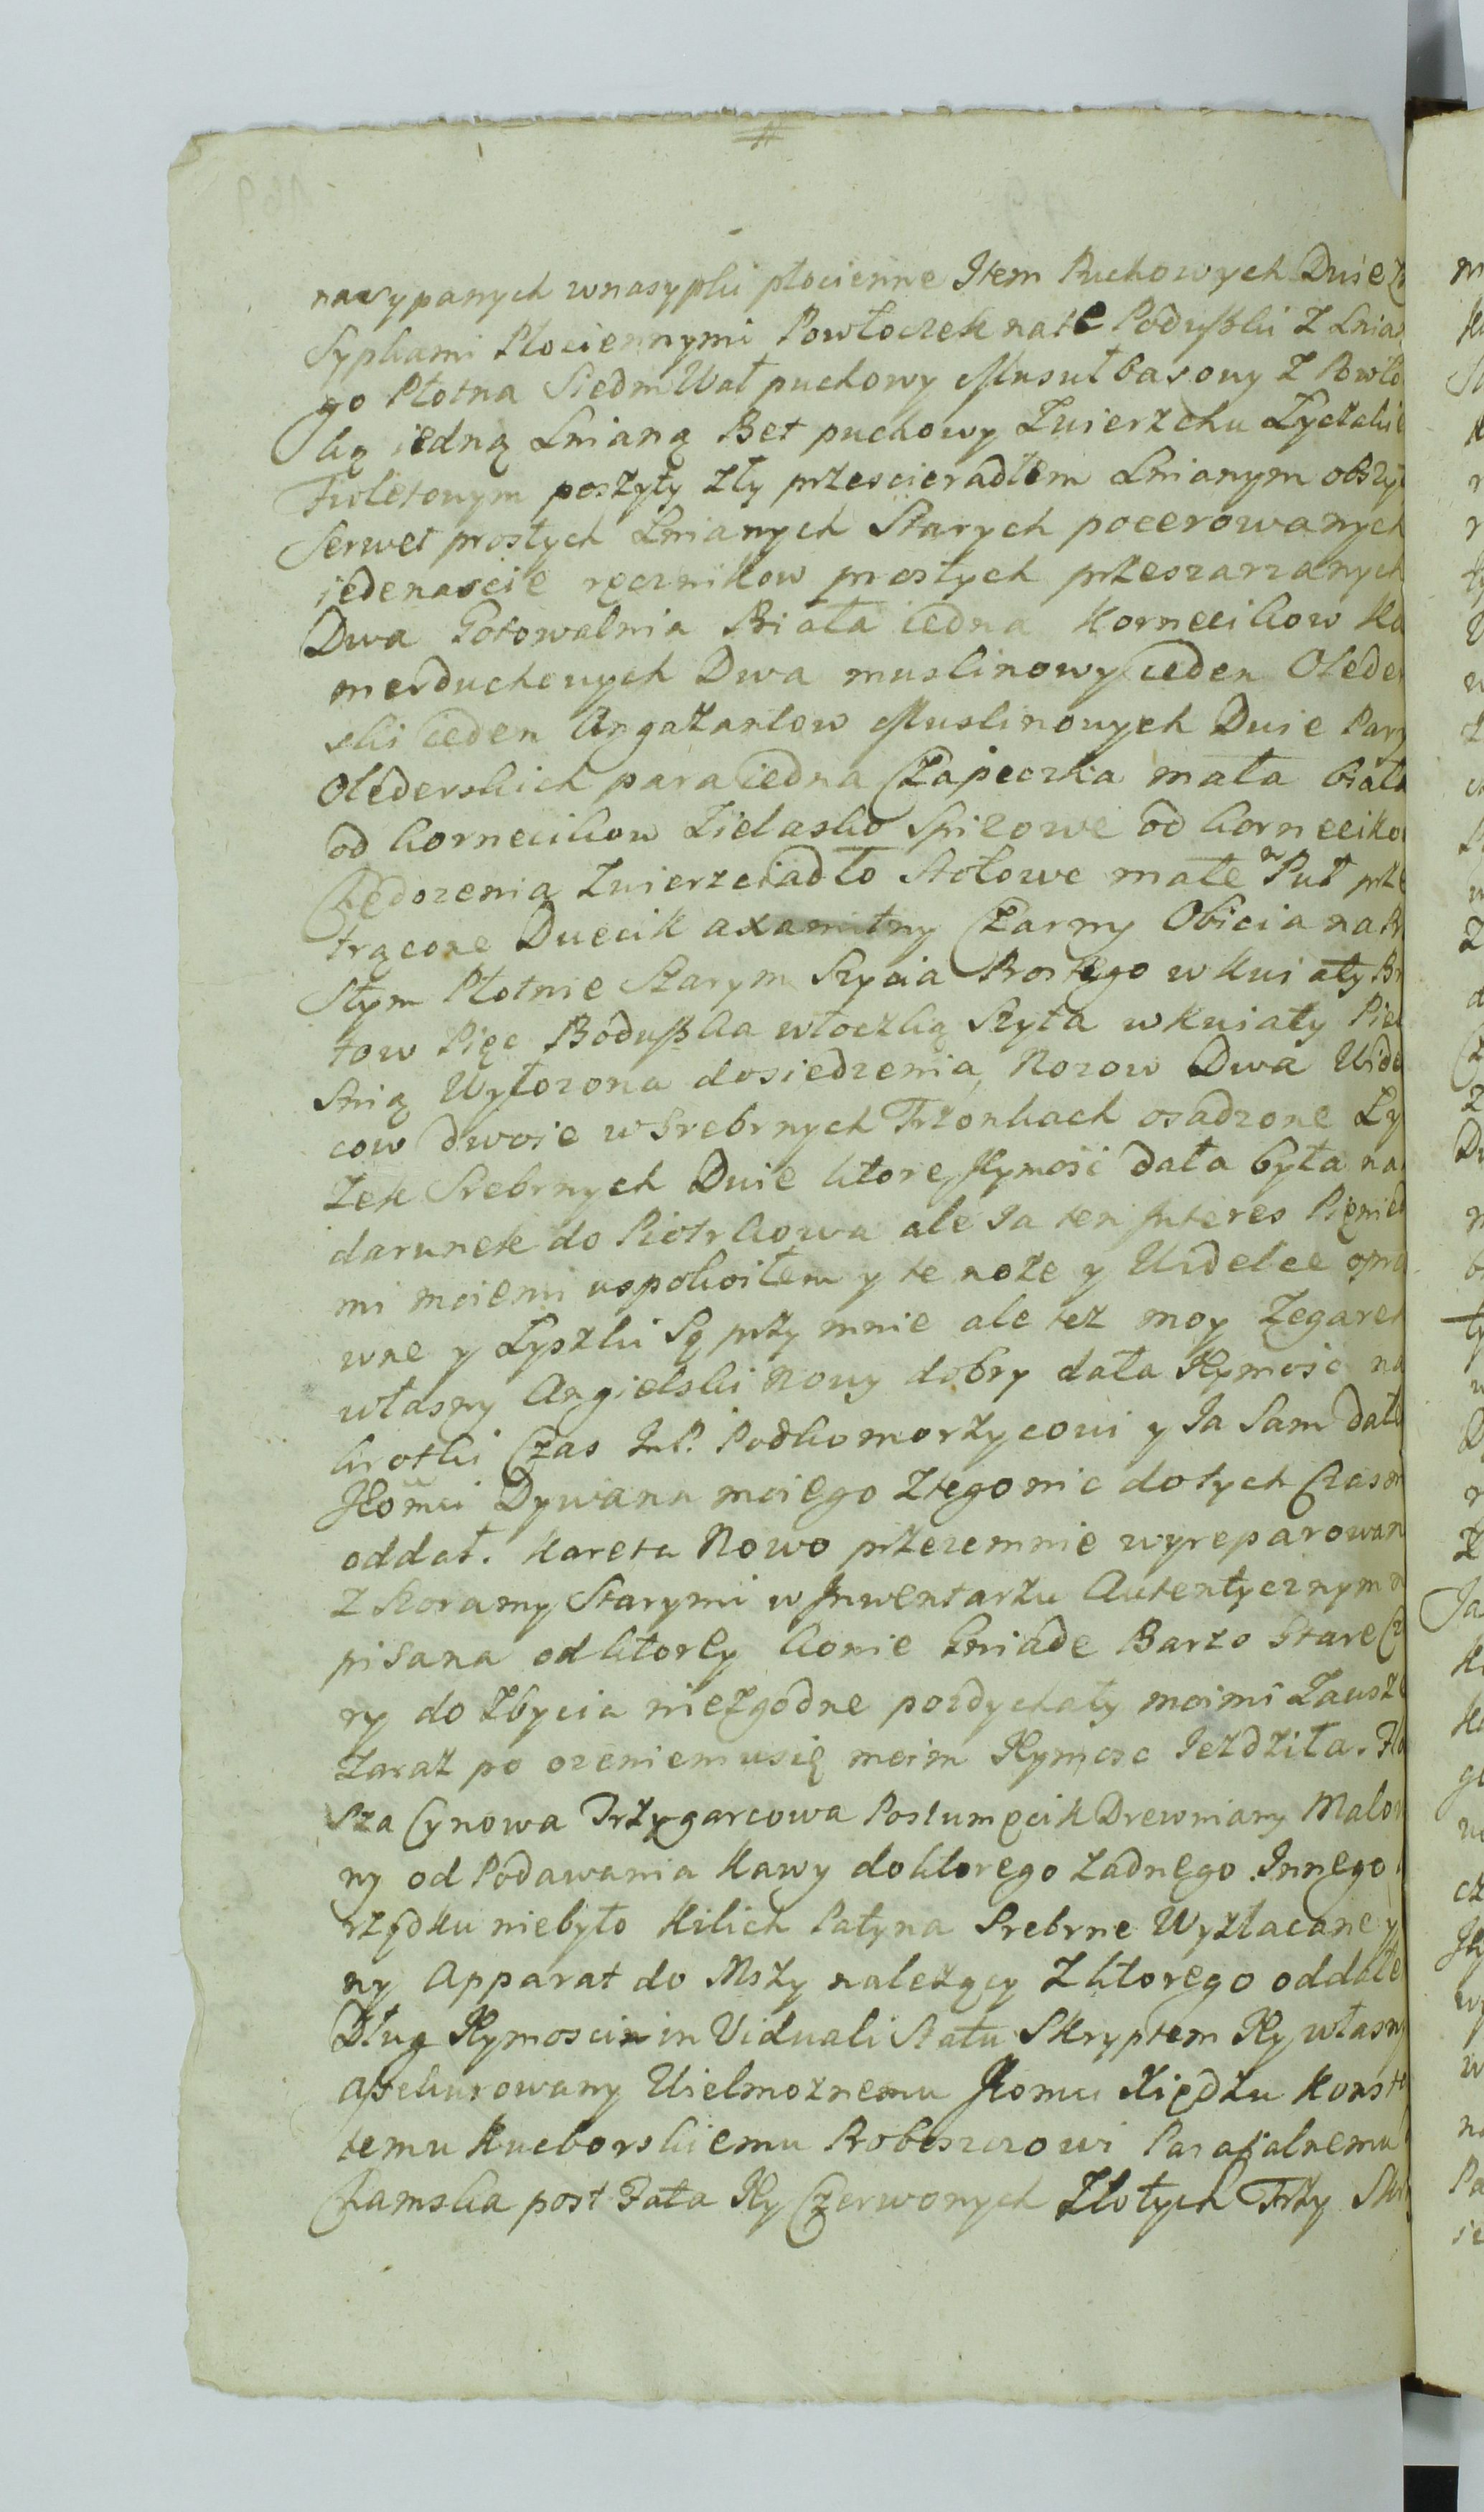 nasypanych wnasypki płocienne Item Puchowych Dwie
Sypkami Płociennymi Powłoczek nate Poduszki z Lnia
go Płotna Siedm Wał puchowy Musułbasowy z Powło
ką iedną Lnianą Bet puchowy Zwierzchu
Fioletowym poszyty zły przescieradłem Lnianym obszy
Serwet prostych Lnianych Starych pocerowanych
iedenascie ręcznikow prostych przeszarzanych
Dwa Gotowalnia Biała iedna Kornecikow Ka
merduchowych Dwa muslinowy ieden Oleder
ski ieden Angazantow Muslinowych Dwie Pary
Olederskich para iedna Czapeczka mała biała
od kornecikow Zielasko Spizowe od korneciko
Chędozenia Zwierzciadło Stołowe małe w Puł prze
trącone Duecik axamitny Czarny Obicia na
Stym Płotnie Starym Szycia Prostego w kwiaty Br
tow Pięc Poduszka włoczką Szyta wkwiaty
Wytozona dosiedzenia Nozow Dwa Wide
cow dwoie w Srebrnych Trzonkach osadzone Ły
zek Srebrnych Dwie ktore Jłymość dała była na
darunek do Piotrkowa ale Ja ten Jnteres Pienied
mi moiemi uspokoiłem y te noże y Widelce opra
wne y Łyszki Są przy mnie ale tez moy zegarek
własny Angielski Nowy dobry dała Jłymość na
krotki Czas ImP. Podkomorzycowi y Ja Sam dał
Jłomci Dywana moiego z tego nic dotych Czas ni
oddał. Kareta Nowo przezemnie wyreparowan
z Szoramy Starymi w Jnwentarzu Autentycznym
pisana odktorey konie Gniade Barzo Stare
ry do zbycia niezgodne pozdychały moimi Zausz
Zaraz po ozeniemusię moim Jłymosc Jezdziła.
Sza Cynowa Trzygarcowa Postumęcik Drewniany Malow
ny od Podawania Kawy doktorego zadnego Innego
rządku niebyło Kilich Patyna Srebrne Wyzłacane y
ny Apparat do Mszy należący z ktorego oddałe
Dług Jłymosci in Viduali Statu Skryptem Jły własn
assekurowany Wielmoznemu Jłomu Xiędzu Konst
temu Kucborskiemu Proboszczowi Parafialnemu
Chamska post Fata Jły Czerwonych Złotych Trzy